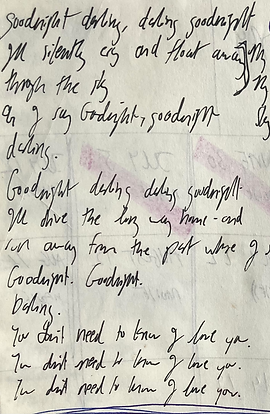 Goodnight darling, darling goodnight
I'll silently cry and float away
through the sky
as I say Godnight, goodnight
darling.
Goodnight darling darling goodnight
I'll drive the long way home - and
run away from the part where I
Goodnight. Goodnight.
Darling.
You don't need to know I love you.
You don't need to know I love you.
You don't need to know I love you.